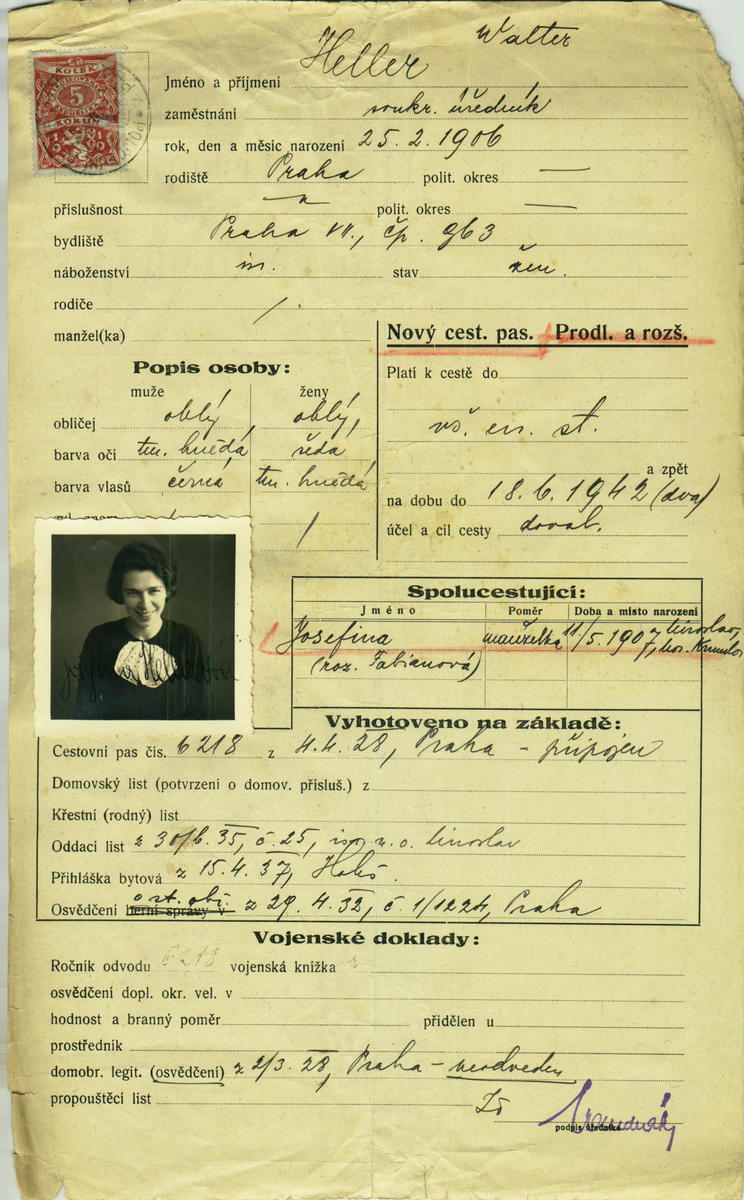 KOLEK
5
KORUN
Walter
Jméno a příjmení Heller
zaměstnání soukr. úředník
rok, den a měsíc narození 25. 2. 1906
rodiště Praha polit. okres —
příslušnost —"— polit. okres —
bydliště Praha VII., čp. 963
náboženství isr. stav žen.
rodiče /.
manžel(ka)
Nový cest. pas. Prodl. a rozš.
Popis osoby:
muže ženy
obličej oblý oblý
barva očí tm. hnědá šedá
barva vlasů černá tm. hnědá
/
Platí k cestě do
vš. ev. st.
a zpět
na dobu do 18. 6. 1942 (dva)
účel a cíl cesty dovol.
Spolucestující:
Jméno Poměr Doba a místo narození
Josefina manželka 11/5. 1907, Miroslav,
(roz. Fabianová) Mor. Krumlov
Vyhotoveno na základě:
Cestovní pas čís. 6218 z 4. 4. 28, Praha – připojen
Domovský list (potvrzení o domov. přísluš.) z
Křestní (rodný) list
Oddací list z 30/6. 35, č. 25, isr. n. o. Miroslav
Přihláška bytová z 15. 4. 37, Holeš.
Osvědčení berní správy v st. obč. z 29. 4. 32, č. 1/1224, Praha
Vojenské doklady:
Ročník odvodu 6218 vojenská knížka z
osvědčení dopl. okr. vel. v
hodnost a branný poměr přidělen u
prostředník
domobr. legit. (osvědčení) z 2/3. 28, Praha – neodveden
propouštěcí list
podpis úředníka